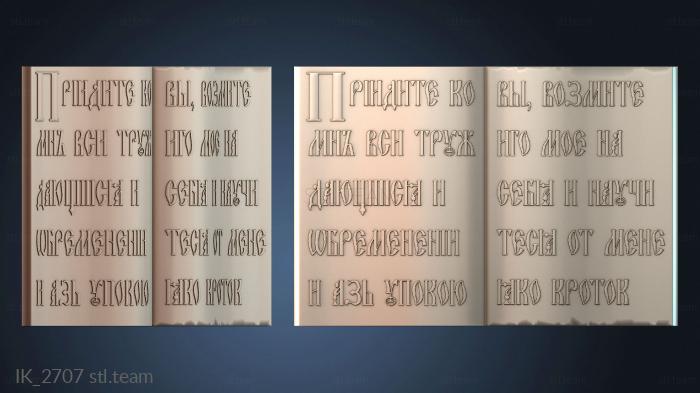 Прїидите ко
мнѣ вси трꙋж
дающїися и
ѡбременении
и азъ ꙋпокою
вы, возмите
иго мое на
себѧ и наꙋчи
тесѧ от мене
ꙗко кроток
Прїидите ко
мнѣ вси трꙋж
дающїися и
ѡбременении
и азъ ꙋпокою
вы, возмите
иго мое на
себѧ и наꙋчи
тесѧ от мене
ꙗко кроток
IK_2707 stl.team